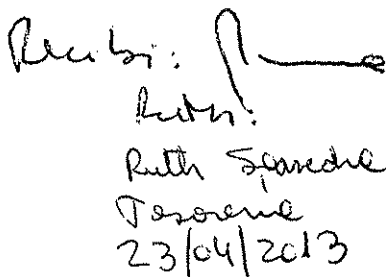 Recibi:
Ruth:
Ruth Saavedra
Tesorería
23/04/2013